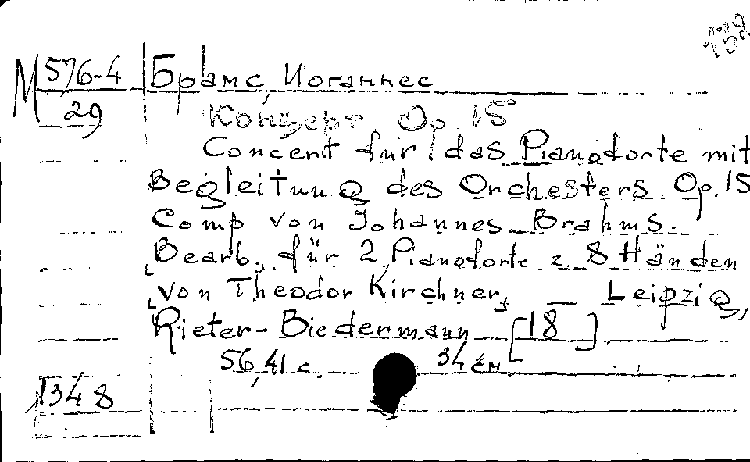 М 576-4
29
Брамс, Иоганнес
Концерт Op. 15
Concert für das Pianoforte mit
Begleitung des Orchesters Op. 15
Comp von Johannes Brahms.
Bearb. für 2 Pianoforte z 8 Händen
von Theodor Kirchner, — Leipzig,
Rieter-Biedermann [18 ]
56,41 с. 34 см
1348